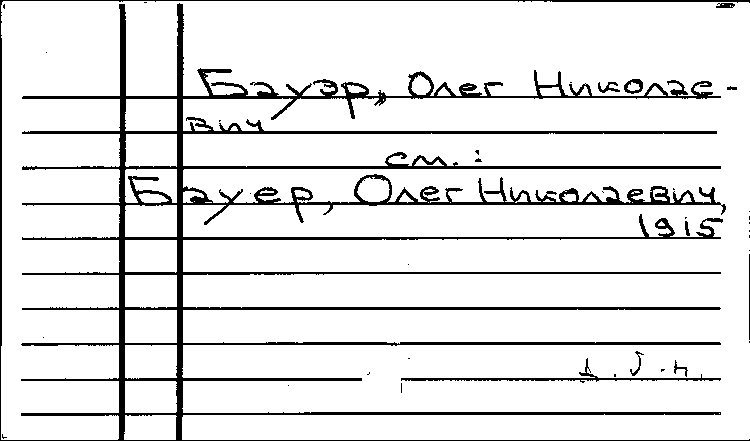 Бауэр, Олег Николае-
вич
см.:
Бауер, Олег Николаевич,
1915